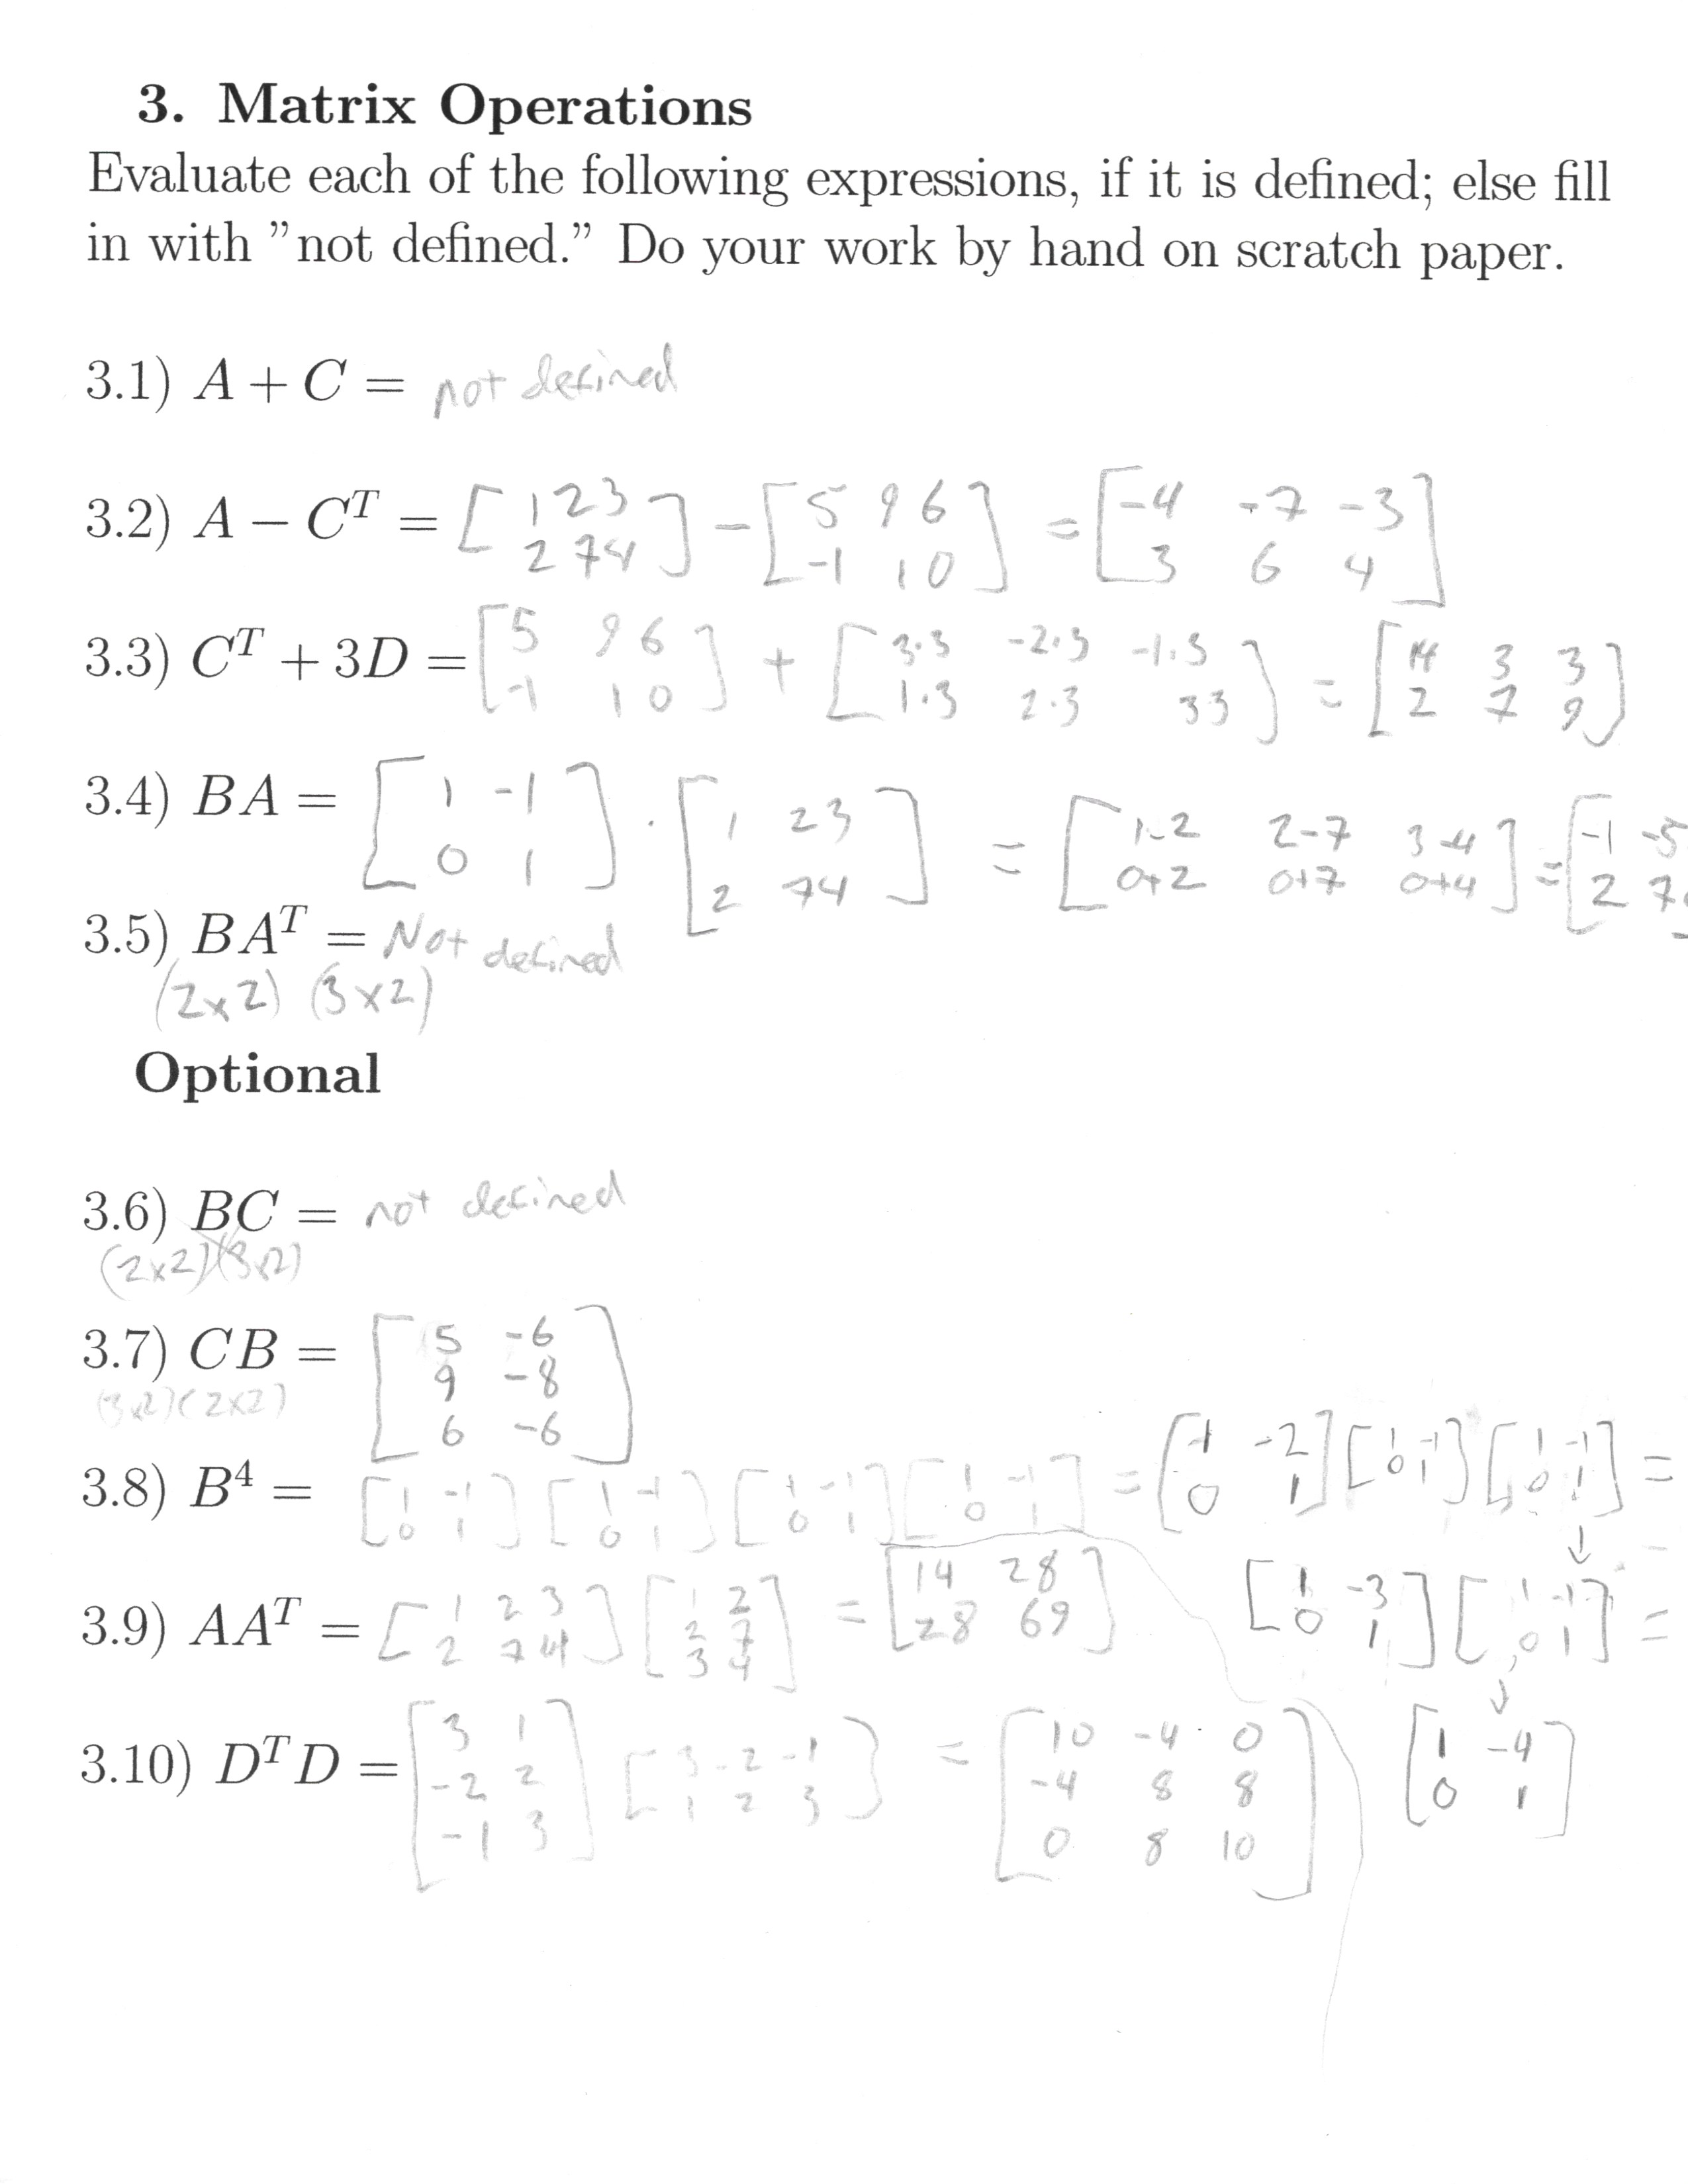 3. Matrix Operations
Evaluate each of the following expressions, if it is defined; else fill
in with ”not defined.” Do your work by hand on scratch paper.
3.1) A + C = not defined
3.2) A − C^T = [1 2 3; 2 7 4] − [5 9 6; -1 1 0] = [-4 -7 -3; 3 6 4]
3.3) C^T + 3D = [5 9 6; -1 1 0] + [3·3 -2·3 -1·3; 1·3 2·3 3·3] = [14 3 3; 2 7 9]
3.4) BA = [1 -1; 0 1] · [1 2 3; 2 7 4] = [1-2 2-7 3-4; 0+2 0+7 0+4] = [-1 -5; 2 7
3.5) BA^T = Not defined
(2×2) (3×2)
Optional
3.6) BC = not defined
(2×2)(3×2)
3.7) CB = [5 -6; 9 -8; 6 -6]
(3×2)(2×2)
3.8) B^4 = [1 -1; 0 1] [1 -1; 0 1] [1 -1; 0 1] [1 -1; 0 1] = [1 -2; 0 1] [1 -1; 0 1] [1 -1; 0 1] =
↓
[1 -3; 0 1] [1 -1; 0 1] =
↓
[1 -4; 0 1]
3.9) AA^T = [1 2 3; 2 7 4] [1 2; 2 7; 3 4] = [14 28; 28 69]
3.10) D^T D = [3 1; -2 2; -1 3] [3 -2 -1; 1 2 3] = [10 -4 0; -4 8 8; 0 8 10]